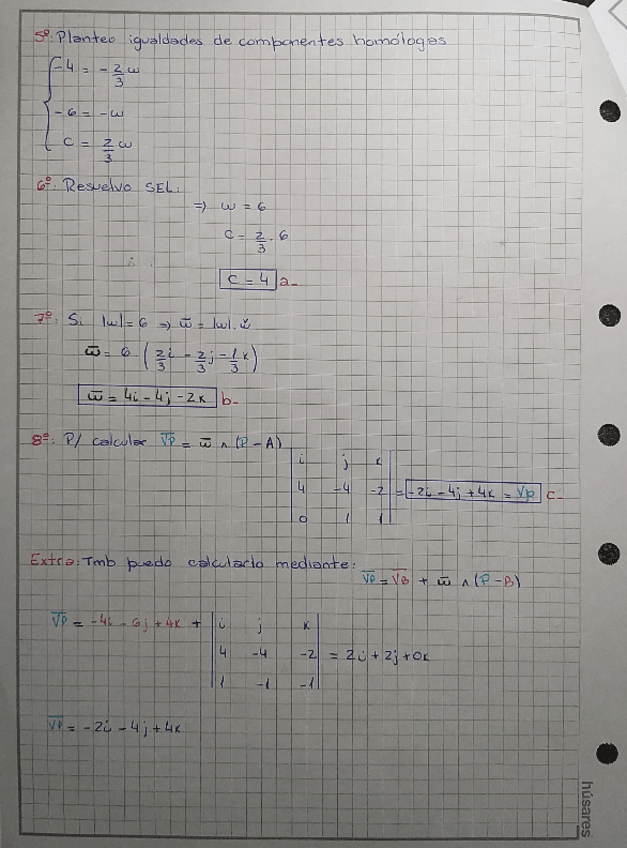 5º: Planteo igualdades de componentes homólogas
-4 = -2/3 ω
-6 = -ω
c = 2/3 ω
6º: Resuelvo SEL:
⇒ ω = 6
c = 2/3 . 6
c = 4 a-
7º: Si |ω| = 6 ⇒ ω̄ = |ω| . ω̌
ω̄ = 6 . (2/3 i - 2/3 j - 1/3 k)
ω̄ = 4i - 4j - 2k b-
8º: P/ calcular V̄P = ω̄ ∧ (P - A)
| i j k |
| 4 -4 -2 | = -2i - 4j + 4k = V̄P c-
| 0 1 1 |
Extra: Tmb puedo calcularlo mediante:
V̄P = V̄B + ω̄ ∧ (P - B)
V̄P = -4i - 6j + 4k + | i j k |
| 4 -4 -2 | = 2i + 2j + 0k
| 1 -1 -1 |
V̄P = -2i - 4j + 4k
húsares